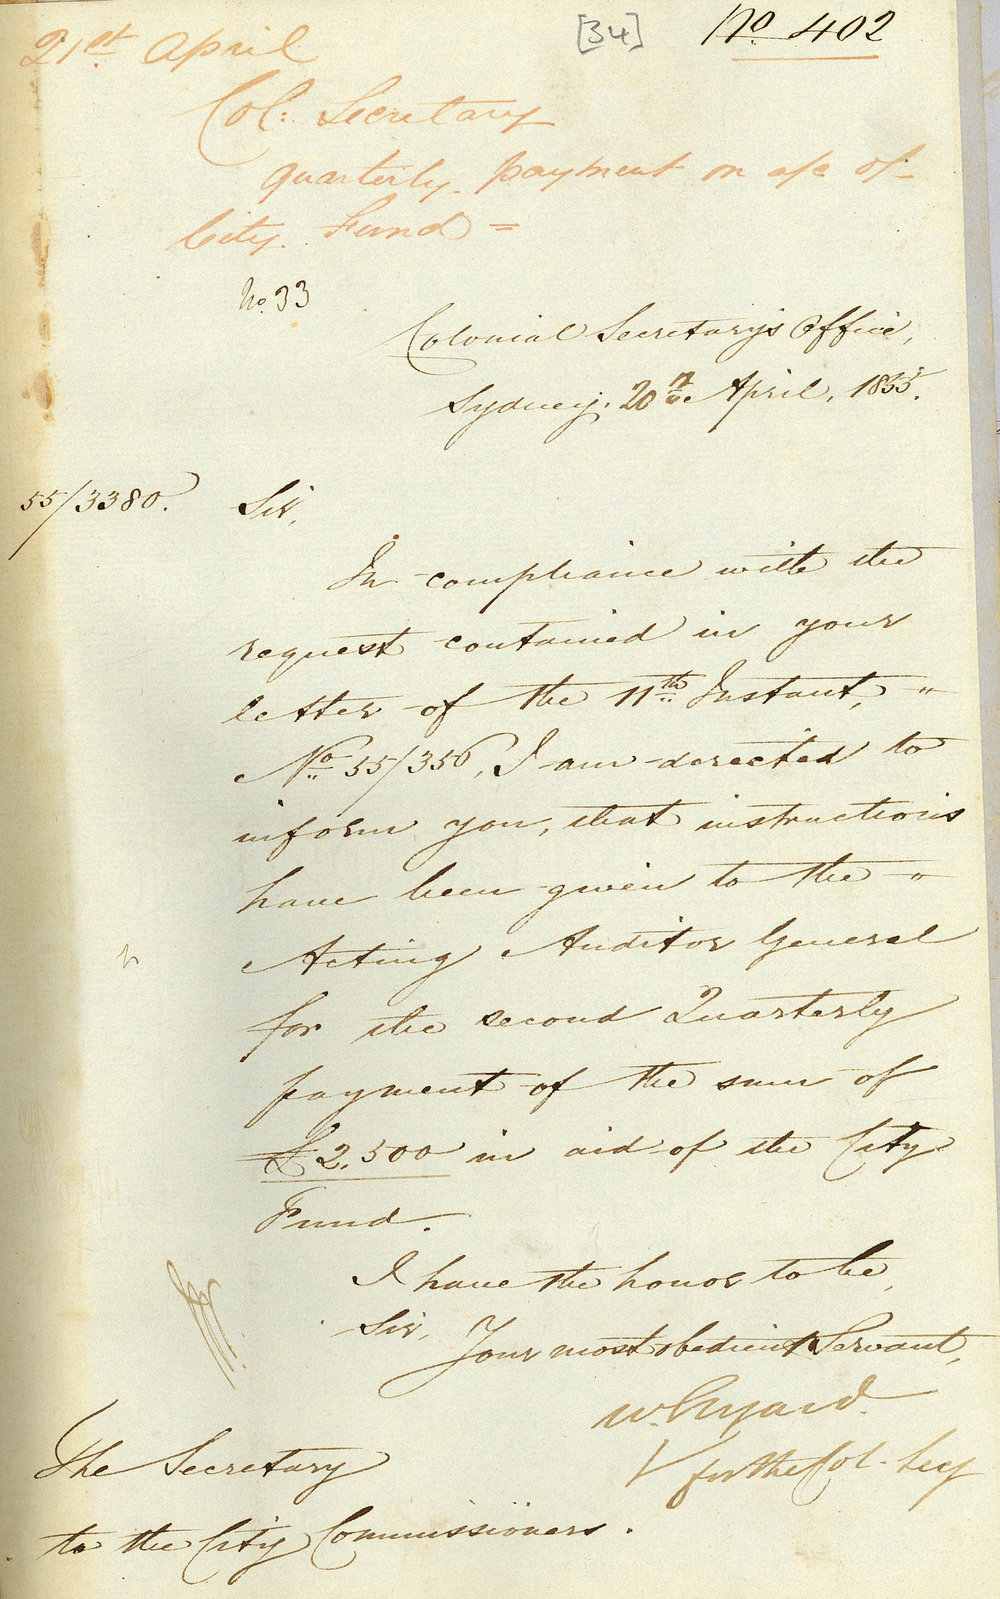 [34]
No. 402
21st April
Col: Secretary
quarterly payment on a/c of
City Fund =
No. 33
Colonial Secretary's Office,
Sydney, 20th April, 1855.
55/3380.
Sir,
In compliance with the
request contained in your
letter of the 11th Instant, "
No. 55/356, I am directed to
inform you, that instructions
have been given to the "
Acting Auditor General
for the second Quarterly
payment of the sum of
£2,500 in aid of the City
Fund.
I have the honor to be,
Sir,
Your most obedient Servant,
W. Elyard
for the Col. Secy
The Secretary
to the City Commissioners.